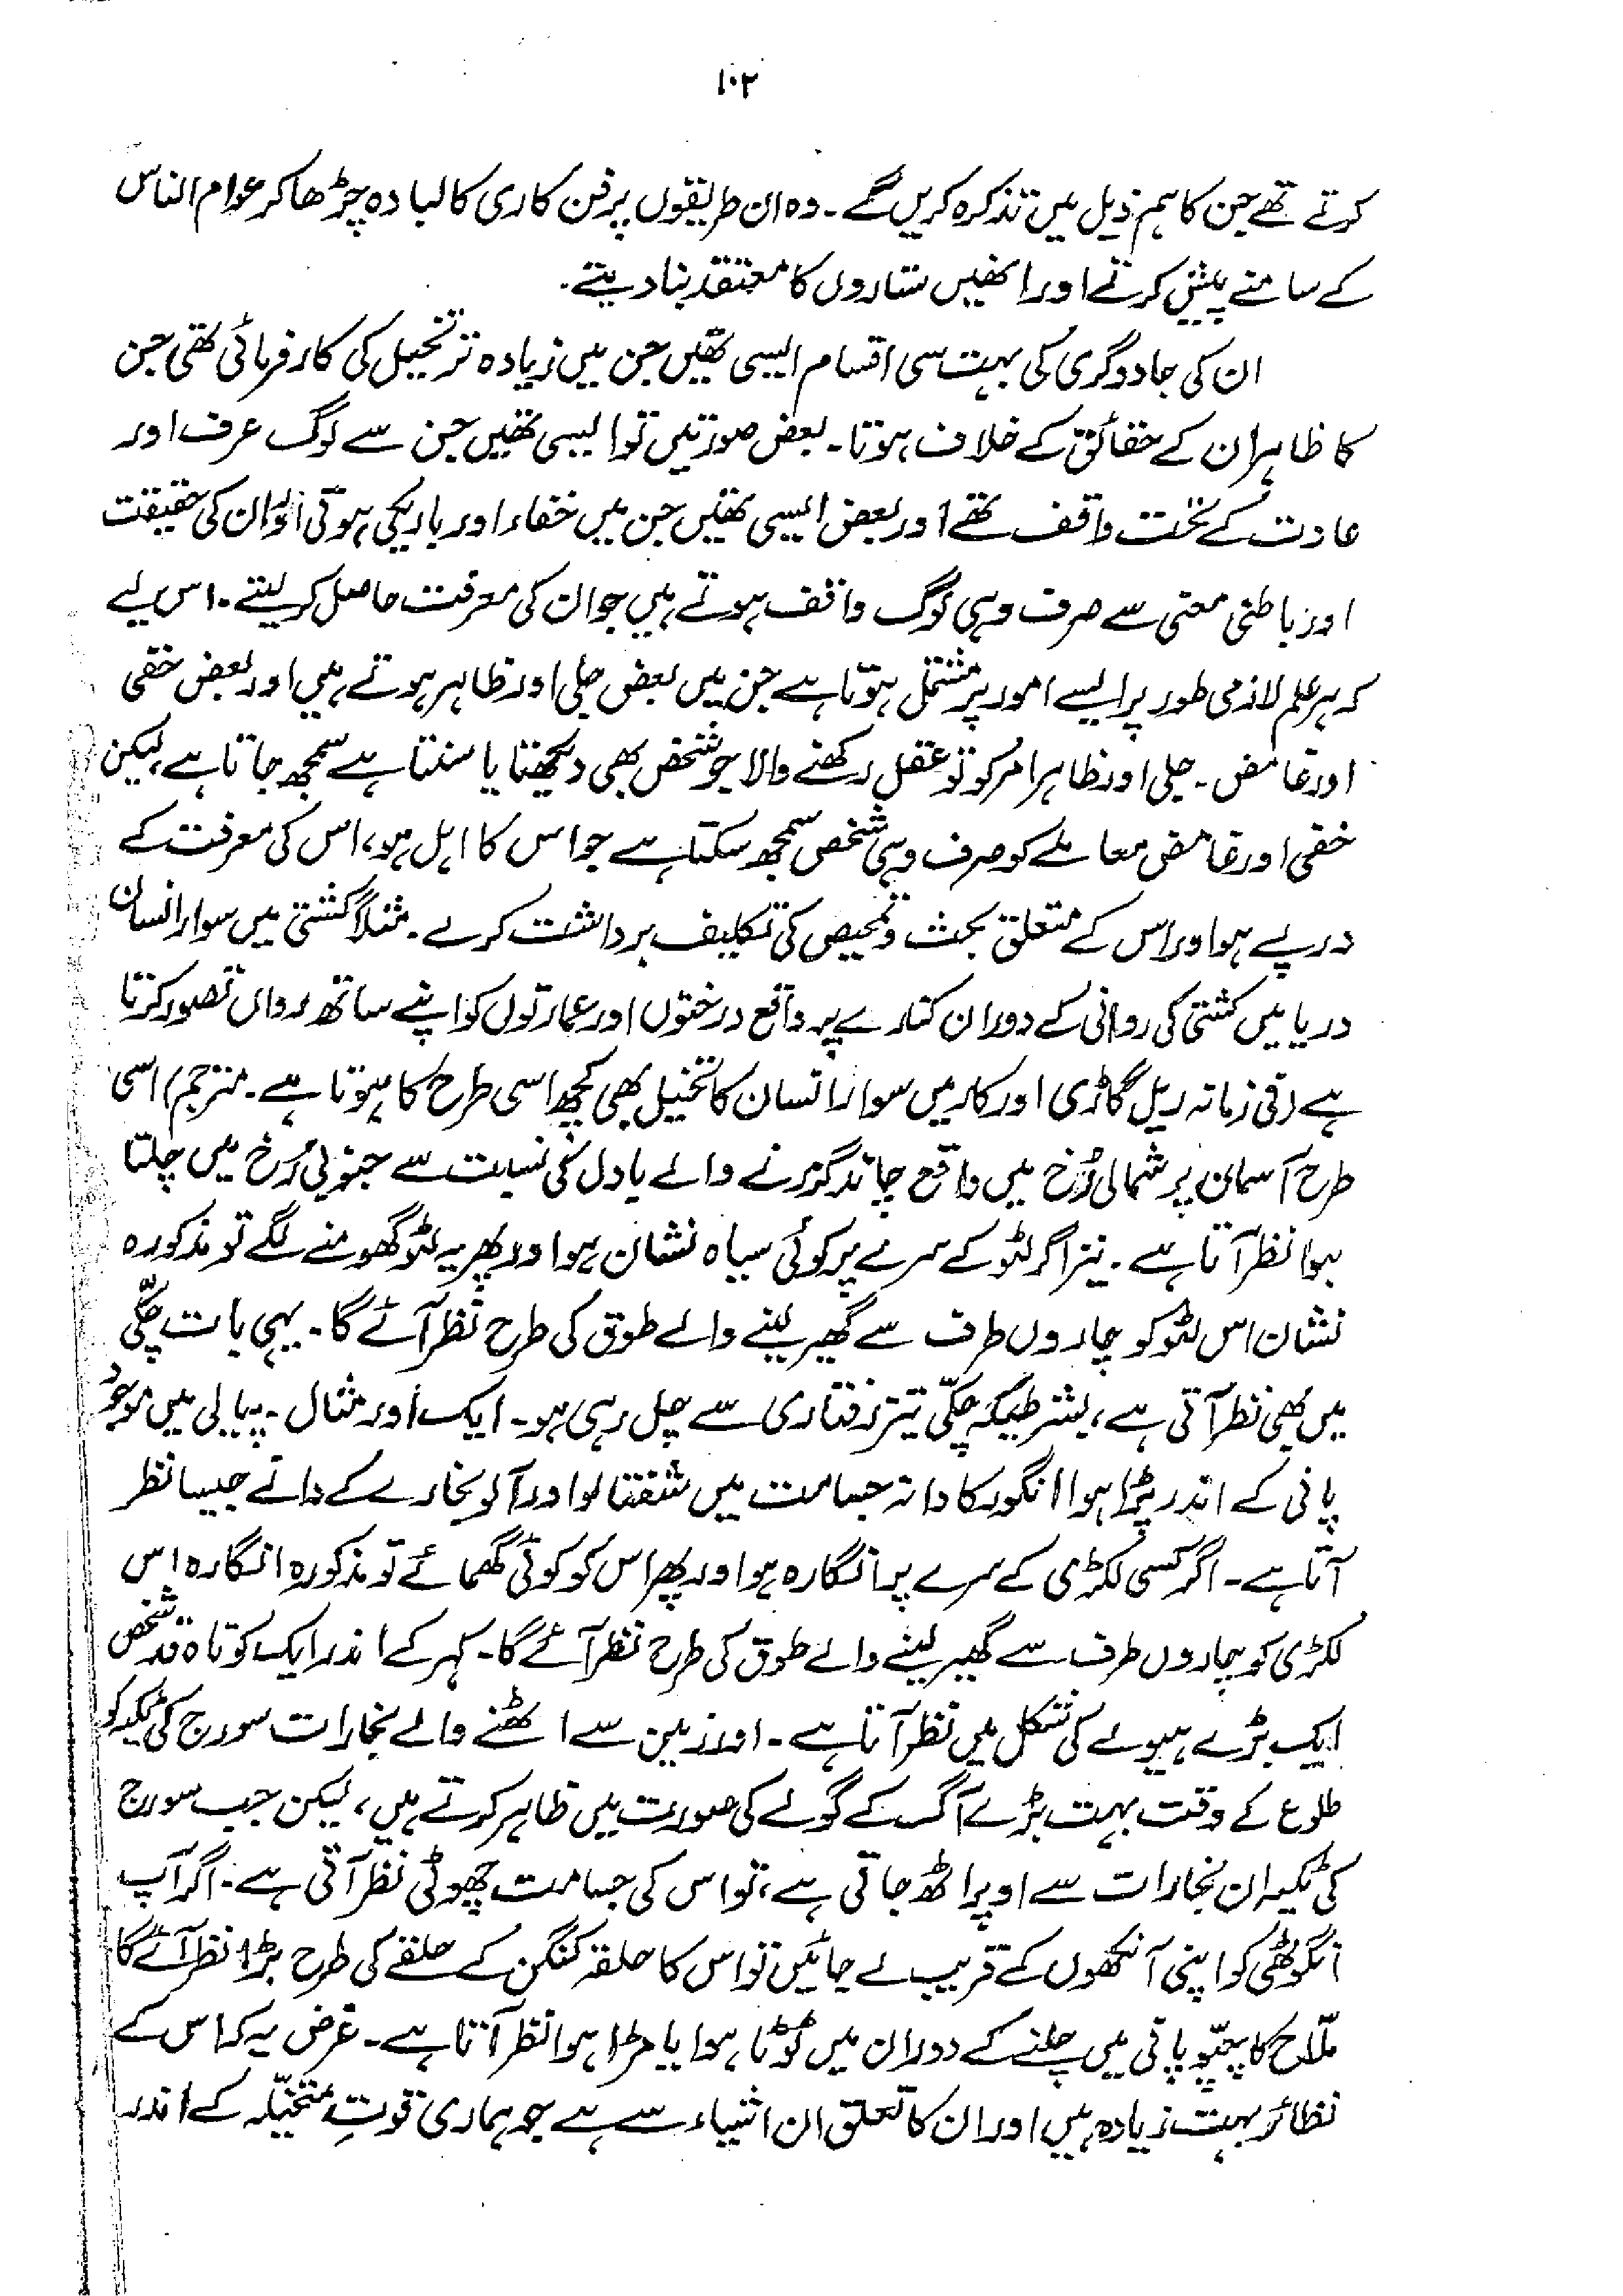 ۱۰۲
کرتے تھے جن کا ہم ذیل میں تذکرہ کریں گے۔ وہ ان طریقوں پر فن کاری کا لبادہ چڑھا کر عوام الناس
کے سامنے پیش کرتے اور انھیں ستاروں کا معتقد بنا دیتے۔
ان کی جادوگری کی بہت سی اقسام ایسی تھیں جن میں زیادہ تر تخییل کی کارفرمائی تھی جن
کا ظاہر ان کے حقائق کے خلاف ہوتا۔ بعض صورتیں تو ایسی تھیں جن سے لوگ عرف اور
عادت کے تحت واقف تھے اور بعض ایسی تھیں جن میں خفاء اور باریکی ہوتی اور ان کی حقیقت
اور باطنی معنی سے صرف وہی لوگ واقف ہوتے ہیں جو ان کی معرفت حاصل کر لیتے۔ اس لیے
کہ ہر علم لازمی طور پر ایسے امور پر مشتمل ہوتا ہے جن میں بعض جلی اور ظاہر ہوتے ہیں اور بعض خفی
اور غامض۔ جلی اور ظاہر امر کو تو عقل رکھنے والا جو شخص بھی دیکھتا یا سنتا ہے سمجھ جاتا ہے، لیکن
خفی اور غامض معاملے کو صرف وہی شخص سمجھ سکتا ہے جو اس کا اہل ہو، اس کی معرفت کے
درپے ہو اور اس کے متعلق بحث و تمحیص کی تکلیف برداشت کرے۔ مثلاً کشتی میں سوار انسان
دریا میں کشتی کی روانی کے دوران کنارے پر واقع درختوں اور عمارتوں کو اپنے ساتھ رواں تصور کرتا
ہے (فی زمانہ ریل گاڑی اور کار میں سوار انسان کا تخیل بھی کچھ اسی طرح کا ہوتا ہے۔ مترجم) اسی
طرح آسمان پر شمالی رُخ میں واقع چاند گزرنے والے بادل کی نسبت سے جنوبی رُخ میں چلتا
ہوا نظر آتا ہے۔ نیز اگر لٹو کے سرے پر کوئی سیاہ نشان ہو اور پھر یہ لٹو گھومنے لگے تو مذکورہ
نشان اس لٹو کو چاروں طرف سے گھیر لینے والے طوق کی طرح نظر آئے گا۔ یہی بات چکّی
میں بھی نظر آتی ہے، بشرطیکہ چکّی تیز رفتاری سے چل رہی ہو۔ ایک اور مثال۔ پیالی میں موجود
پانی کے اندر پڑا ہوا انگور کا دانہ جسامت میں شفتالو اور آلو بخارے کے دانے جیسا نظر
آتا ہے۔ اگر کسی لکڑی کے سرے پر انگارہ ہو اور پھر اس کو کوئی گھمائے تو مذکورہ انگارہ اس
لکڑی کو چاروں طرف سے گھیر لینے والے طوق کی طرح نظر آئے گا۔ کہر کے اندر ایک کوتاہ قد شخص
ایک بڑے ہیولے کی شکل میں نظر آتا ہے۔ اور زمین سے اٹھنے والے بخارات سورج کی ٹکیہ کو
طلوع کے وقت بہت بڑے آگ کے گولے کی صورت میں ظاہر کرتے ہیں، لیکن جب سورج
کی ٹکیہ ان بخارات سے اوپر اٹھ جاتی ہے، تو اس کی جسامت چھوٹی نظر آتی ہے۔ اگر آپ
انگوٹھی کو اپنی آنکھوں کے قریب لے جائیں تو اس کا حلقہ کنگن کے حلقے کی طرح بڑا نظر آئے گا
ملّاح کا چپّو پانی میں چلنے کے دوران میں ٹوٹا ہوا یا مڑا ہوا نظر آتا ہے۔ غرض یہ کہ اس کے
نظائر بہت زیادہ ہیں اور ان کا تعلق ان اشیاء سے ہے جو ہماری قوتِ متخیّلہ کے اندر